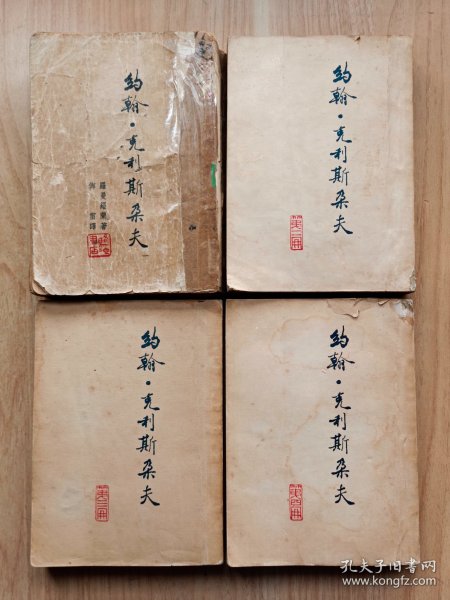 約翰·克利斯朵夫
羅曼羅蘭著
傅雷譯
約翰·克利斯朵夫
第二冊
約翰·克利斯朵夫
第三冊
約翰·克利斯朵夫
第四冊
孔夫子旧书网
www.kongfz.com